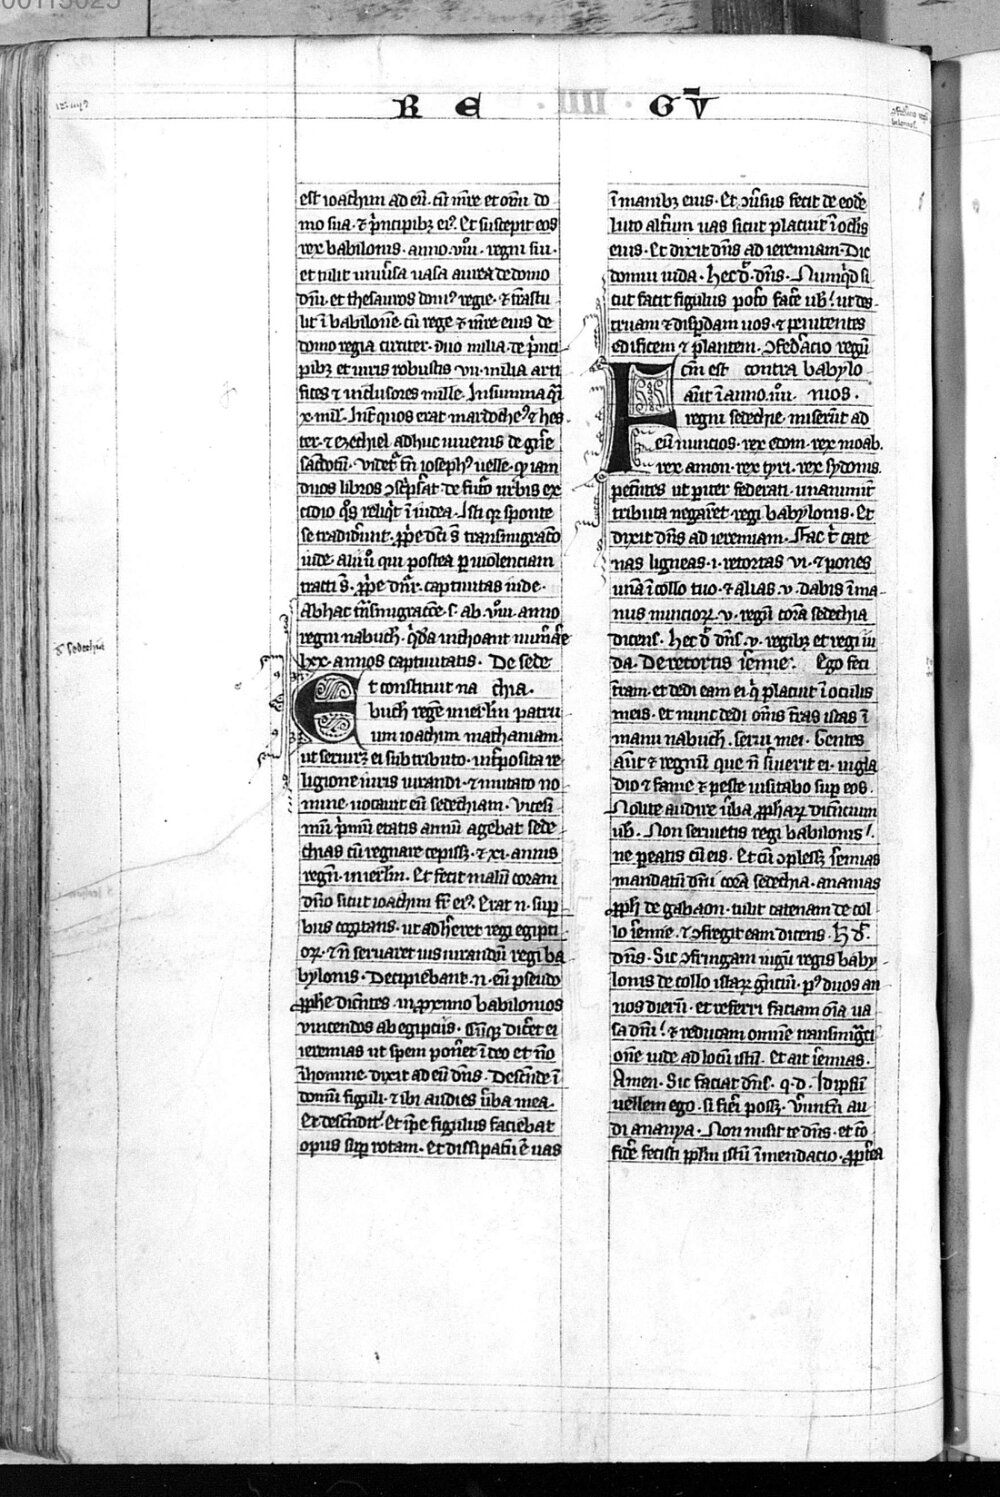 00113025
R E G V̄
est ioachim ad eū. cū mr̄e et om̄i do
mo sua. ⁊ p̄ncipibꝫ eiꝰ. Et suscepit eos
rex babilonis. anno. viii. regni sui.
et tulit uniūsa uasa aurea de domo
dn̄i. et thesauros domꝰ regie. ⁊ trāstu
lit ī babilonē. cū rege ⁊ mr̄e eius de
domo regia circiter. duo milia. de p̄nci
pibꝫ et uiris robustis vii. milia arti
fices ⁊ inclusores mille. In summa qͣi
x. mil. Int̄ quos erat mardocheꝰ ⁊ hes
ter. ⁊ ezechiel adhuc iuuenis de gn̄e
sac̄dotū. Videt᷑ tn̄ iosephꝰ uelle. ꝙ iam
duos libros ↄsc̄psāt de fut̄o urbis ex
cidio qͦs reliqͥt ī iudea. Isti qꝛ sponte
se tradidūnt. ꝓp̄e dc̄i s̄ transmigrac̄o
iude. Alii ū qui postea ꝑ uiolenciam
tracti s̄. ꝓp̄e dn̄r. captiuitas iude.
Ab hac trāsmigrac̄oe. s. ab. viii. anno
regni nabuch. qͥda inchoant num̄are
lxx. annos captiuitatis. De sede
Et constituit na chia.
buch regē in ierl̄m patru
um ioachim mathaniam
ut seruirꝫ ei sub tributo. int̄posita re
ligione iuris iurandi. ⁊ mutato no
mine. uocauit eū sedechiam. Vicesi
mū p̄mū etatis annū agebat sede
chias cū regnare cepissꝫ. ⁊ xi. annis
regn̄. in ierl̄m. Et fecit malū coram
dn̄o sicut ioachim fr̄ eiꝰ. Erat n. suꝑ
bus cogitans. ut adh̄eret regi egipti
oꝝ. ⁊ n̄ seruaret ius iurandū regi ba
bylonis. Decipiebant. n. eū pseudo
ꝓphe dic̄ntes. in ꝓximo babilonios
vincendos ab egiptiis. Cūqꝫ dic̄et ei
ieremias ut spem pon̄et ī deo et nō
ī homine. dixit ad eū dn̄s. Descende ī
domū figuli. ⁊ ibi audies ūba mea.
Et descendit. Et ip̄e figulus faciebat
opus suꝑ rotam. Et dissipatū ē uas
ī manibꝫ eius. Et ↄūsus fecit de eodē
luto alt̄um uas sicut placuit ī oc̄lis
eius. Et dixit dn̄s ad ieremiam. Dic
domui iuda. Hec d᷑. dn̄s. Nūmqͥd si
cut facit figulus poss̄o fac̄e uob̄. ut des
truam ⁊ disp̄dam uos. ⁊ penitentes
edificem ⁊ plantem. ↄfed̄acio regū
Fc̄m est contra babylo
aūt ī anno. iiii. nios.
regni sedechie. miserūt ad
eū nuncios. rex edom. rex moab.
rex amon. rex tyri. rex sydonis.
petētes ut pariter federati. unanimit̄
tributa negarēt. regi babylonis. Et
dixit dn̄s ad ieremiam. Fac t̄ cate
nas ligneas. i. retortas vi. ⁊ pones
unā ī collo tuo. ⁊ alias. v. dabis ī ma
nus nuncioꝝ. v. regū corā sedechia
dicens. Hec d᷑ dn̄s. v. regibꝫ et regi iu
da. De retortis iēmie. Ego feci
t̄ram. et dedi eam ei qͥ placuit ī oculis
meis. et nunc dedi om̄s t̄ras istas ī
manu nabuch. serui mei. Gentes
aūt ⁊ regnū que n̄ s̄uierit ei. in gla
dio ⁊ fame ⁊ peste uisitabo suꝑ eos.
Nolite audire ūba ꝓphaꝝ dicencium
uob̄. Non seruietis regi babilonis.
ne ꝑeatis cū eis. Et cū ↄplessꝫ iēmias
mandatū dn̄i corā sedechia. ananias
ꝓph̄ de gabaon. tulit catenam de col
lo iēmie. ⁊ ↄfregit eam dicens. H̄ d᷑.
dn̄s. Sic ↄfringam iugū regis baby
lonis de collo istaꝝ gn̄tiū. pꝰ duos an
nos dierū. et referri faciam oīa ua
sa dn̄i. ⁊ reducam omnē transmigͣti
onē iude ad locū istū. Et ait iēmias.
Amen. Sic faciat dn̄s. q. d. Id ipsū
uellem ego. si fieri possꝫ. Ūūntn̄ au
di ananya. Non misit te dn̄s. et cō
fidēe fecisti pp̄lm istū ī mendacio. ꝓpt̄ea